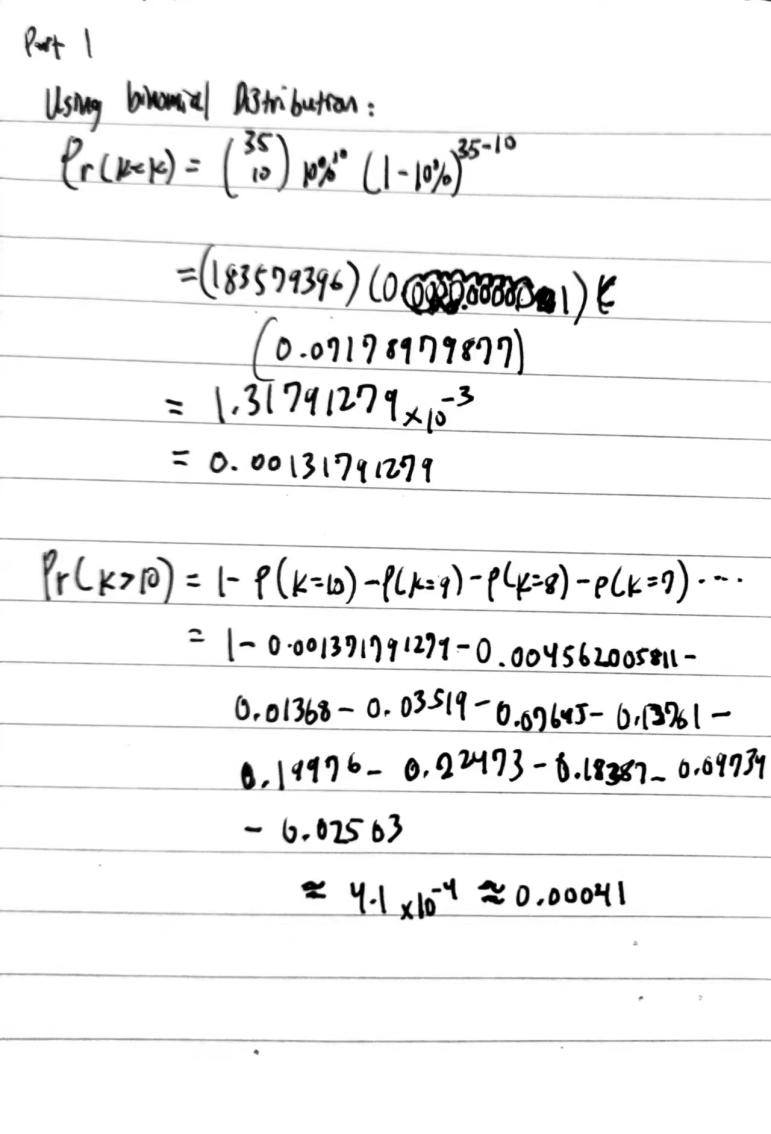 Part 1
Using binomial Distribution:
Pr(K=k) = (35 10) 10%^10 (1-10%)^35-10
= (183579396) (0 1)
(0.07178979877)
= 1.31791279 × 10^-3
= 0.00131791279
Pr(K>10) = 1 - P(K=10) - P(K=9) - P(K=8) - P(K=7) ....
= 1 - 0.00131791279 - 0.004562005811 -
0.01368 - 0.03519 - 0.07645 - 0.13761 -
0.19976 - 0.22473 - 0.18387 - 0.09734
- 0.02503
≈ 4.1 × 10^-4 ≈ 0.00041